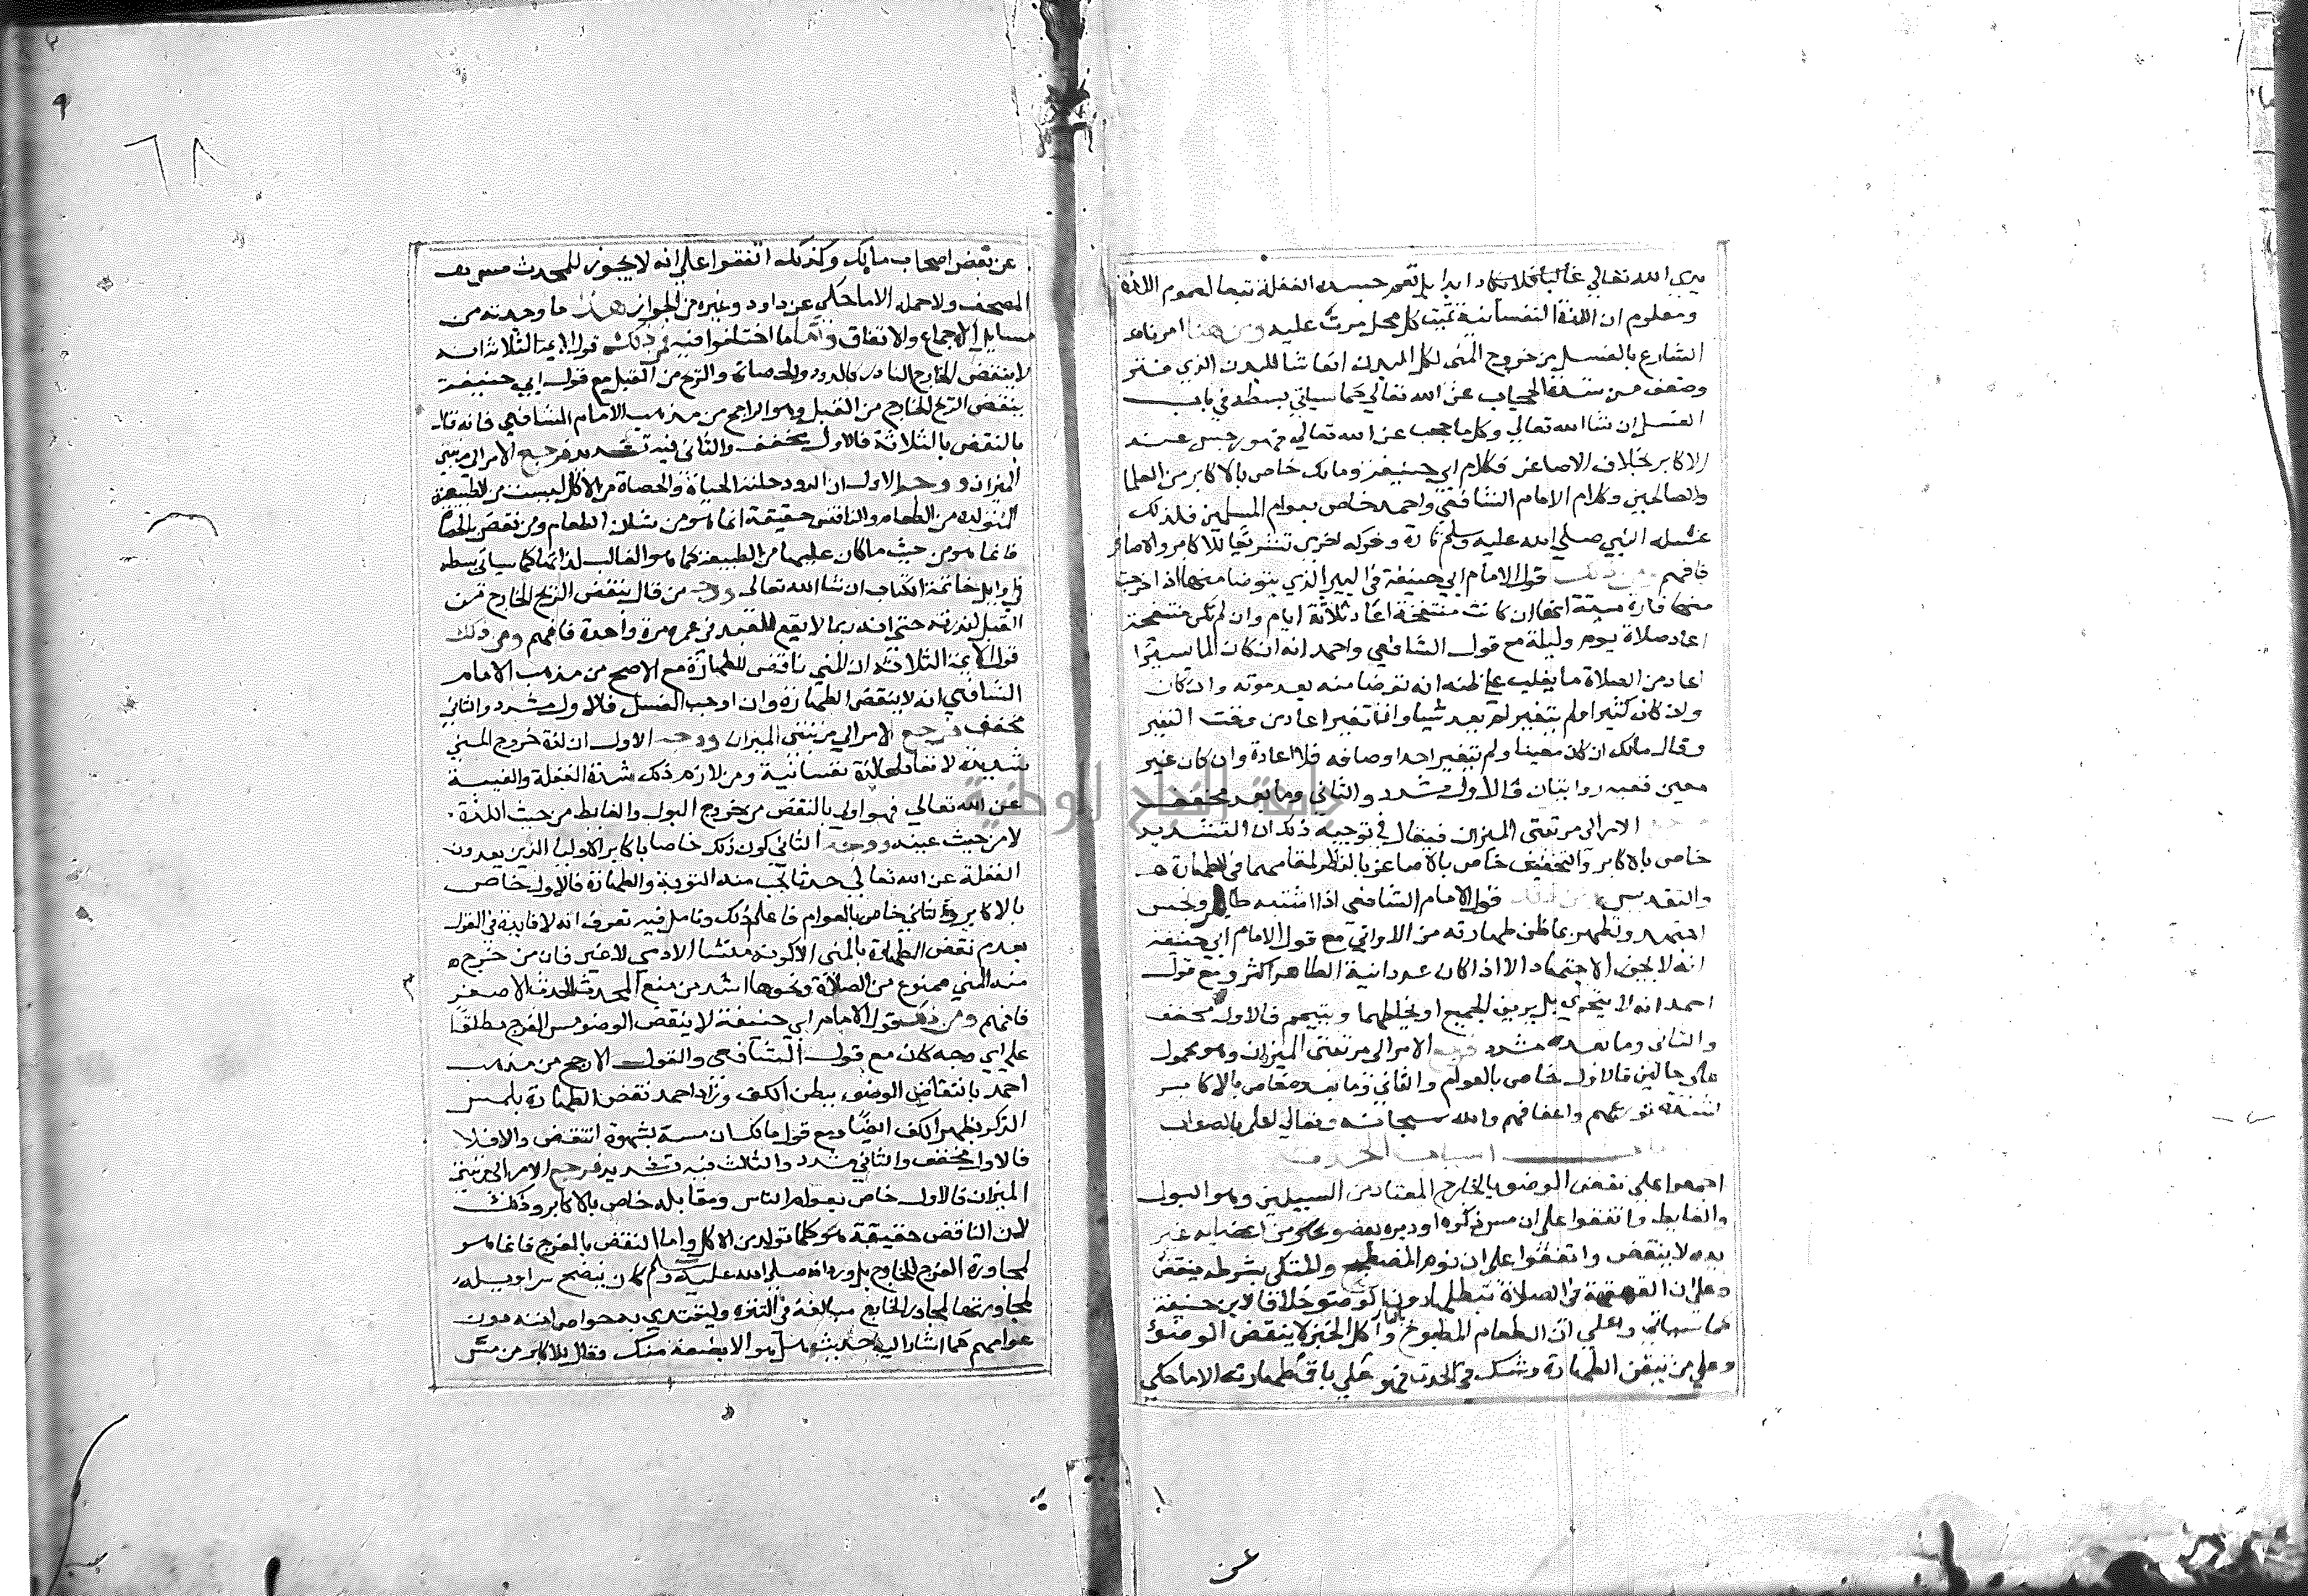 يدي الله تعالى غالبا فلا يكاد ابدا بل تعم جسده الغفلة تبعا لعموم اللذة
ومعلوم ان اللذة النفسانية تميت كل محل مرت عليه ومن هنا امرنا
الشارع بالغسل من خروج المني لكل البدن انعاشا للبدن الذي فتر
وضعف من شدة الحجاب عن الله تعالى كما سياتي بسطه في باب
الغسل ان شا الله تعالى وكل ما حجب عن الله تعالى فهو رجس عند
الاكابر بخلاف الاصاغر فكلام ابي حنيفة ومالك خاص بالاكابر من العلما
والصالحين وكلام الامام الشافعي واحمد خاص بعوام المسلمين فلذلك
غسله النبي صلى الله عليه وسلم تارة وفركه اخرى تشريعا للاكابر والاصاغر
فافهم ومن ذلك قول الامام ابي حنيفة في البير الذي يتوضا منها اذا اخرجت
منها فارة ميتة انها ان كانت منتفخة اعاد ثلاثة ايام وان لم تكن منتفخة
اعاد صلاة يوم وليلة مع قول الشافعي واحمد انه ان كان الما يسيرا
اعاد من الصلاة ما يغلب على ظنه انه توضا منه بعد موته وان كان
ولان كان كثيرا ولم يتغير لم يعد شيا وان تغير اعاد من وقت التغير
وقال مالك ان كان معينا ولم يتغير احد اوصافه فلا اعادة وان كان غير
معين فعنه روايتان فالاول مشدد والثاني وما بعده مخفف
فرجع الامر الى مرتبتي الميزان فيقال في توجيه ذلك ان التشديد
خاص بالاكابر والتخفيف خاص بالاصاغر بالنظر لمقامهما في الطهارة
والتقديس ومن ذلك قول الامام الشافعي اذا اشتبه طاهر ونجس
اجتهد وتطهر بما ظن طهارته من الاواني مع قول الامام ابي حنيفة
انه لا يجوز الاجتهاد الا اذا كان عدد انية الطاهر اكثر ومع قول
احمد انه لا يتحرى بل يريق الجميع او يخلطهما ويتيمم فالاول مخفف
والثاني وما بعده مشدد فرجع الامر الى مرتبتي الميزان وهو محمول
على حالين فالاول خاص بالعوام والثاني وما بعده خاص بالاكابر
لشدة تورعهم واعفافهم والله سبحانه وتعالى اعلم بالصواب
باب اسباب الحدث
اجمعوا على نقض الوضو بالخارج المعتاد من السبيلين وهو البول
والغايط واتفقوا على ان مس ذكره او دبره بعضو من اعضايه غير
يده لا ينقض واتفقوا على ان نوم المضطجع والمتكي بشرطه ينقض
وعلى ان القهقهة في الصلاة تبطلها دون الوضو خلافا لابي حنيفة
كما سياتي وعلى ان الطعام المطبوخ واكل الخبز لا ينقض الوضوء
وعلى من تيقن الطهارة وشك في الحدث فهو على باق طهارته الا ما حكي
عن
عن بعض اصحاب مالك وكذلك اتفقوا على انه لا يجوز للمحدث مس
المصحف ولا حمله الا ما حكي عن داود وغيره من الجواز هذا ما وجدته من
مسايل الاجماع والاتفاق واما ما اختلفوا فيه فمن ذلك قول الايمة الثلاثة انه
لا ينتقض الخارج النادر كالدود والحصاة والريح من القبل مع قول ابي حنيفة
ينقض الريح الخارج من القبل وهو الراجح من مذهب الامام الشافعي فانه قال
بالنقض بالثلاثة فالاول مخفف والثاني فيه تشديد فرجع الامر الى مرتبتي
الميزان ووجه الاول ان الدود حلته الحياة والحصاة من الاكل ليست من الطبيعة
المتولدة من الطعام والناقض حقيقة انما هو من شان الطعام ومن نقض بالحصا
فانما هو من حيث ما كان عليها من الطبيعة كما هو الغالب لا لذاتها كما سياتي بسطه
في اوايل خاتمة الكتاب ان شا الله تعالى ووجه من قال ينقض الريح الخارج من
القبل لندرته حتى انه ربما لا يقع للعبد في عمره مرة واحدة فافهم ومن ذلك
قول الايمة الثلاثة ان المني ناقض للطهارة مع الاصح من مذهب الامام
الشافعي انه لا ينقض الطهارة وان اوجب الغسل فالاول مشدد والثاني
مخفف فرجع الامر الى مرتبتي الميزان ووجه الاول ان لذة خروج المني
شديدة لا تعادلها لذة نفسانية ومن لازم ذلك شدة الغفلة والغيبة
عن الله تعالى فهو اولى بالنقض من خروج البول والغايط من حيث اللذة
لا من حيث عينه ووجه الثاني كون ذلك خاصا باكابر الاوليا الذين يعدون
الغفلة عن الله تعالى حدثا تجب منه التوبة والطهارة فالاول خاص
بالاكابر والثاني خاص بالعوام فاعلم ذلك وتامل فيه تعرف انه لا فايدة في القول
بعدم نقض الطهارة بالمني الا كونه منشا الادمي لا غير فان من خرج
منه المني ممنوع من الصلاة ونحوها اشد من منع المحدث الحدث الاصغر
فافهم ومن ذلك قول الامام ابي حنيفة لا ينقض الوضو مس الفرج مطلقا
على اي وجه كان مع قول الشافعي والقول الارجح من مذهب
احمد بانتقاض الوضوء ببطن الكف وزاد احمد نقض الطهارة بلمس
الذكر بظهر الكف ايضا ومع قول مالك ان مسه بشهوة انتقض والا فلا
فالاول مخفف والثاني مشدد والثالث فيه تشديد فرجع الامر الى مرتبتي
الميزان فالاول خاص بعوام الناس ومقابله خاص بالاكابر وذلك
لان الناقض حقيقة هو كلما تولد من الاكل واما النقض بالفرج فانما هو
لمجاورة الفرج للخارج بل ورد انه صلى الله عليه وسلم كان ينضح سراويله
لمجاورتها لمجاور الخارج مبالغة في التنزه وليقتدي به خواص امته دون
عوامهم كما اشار اليه حديث هل هو الا بضعة منك وقال للاكابر من مس